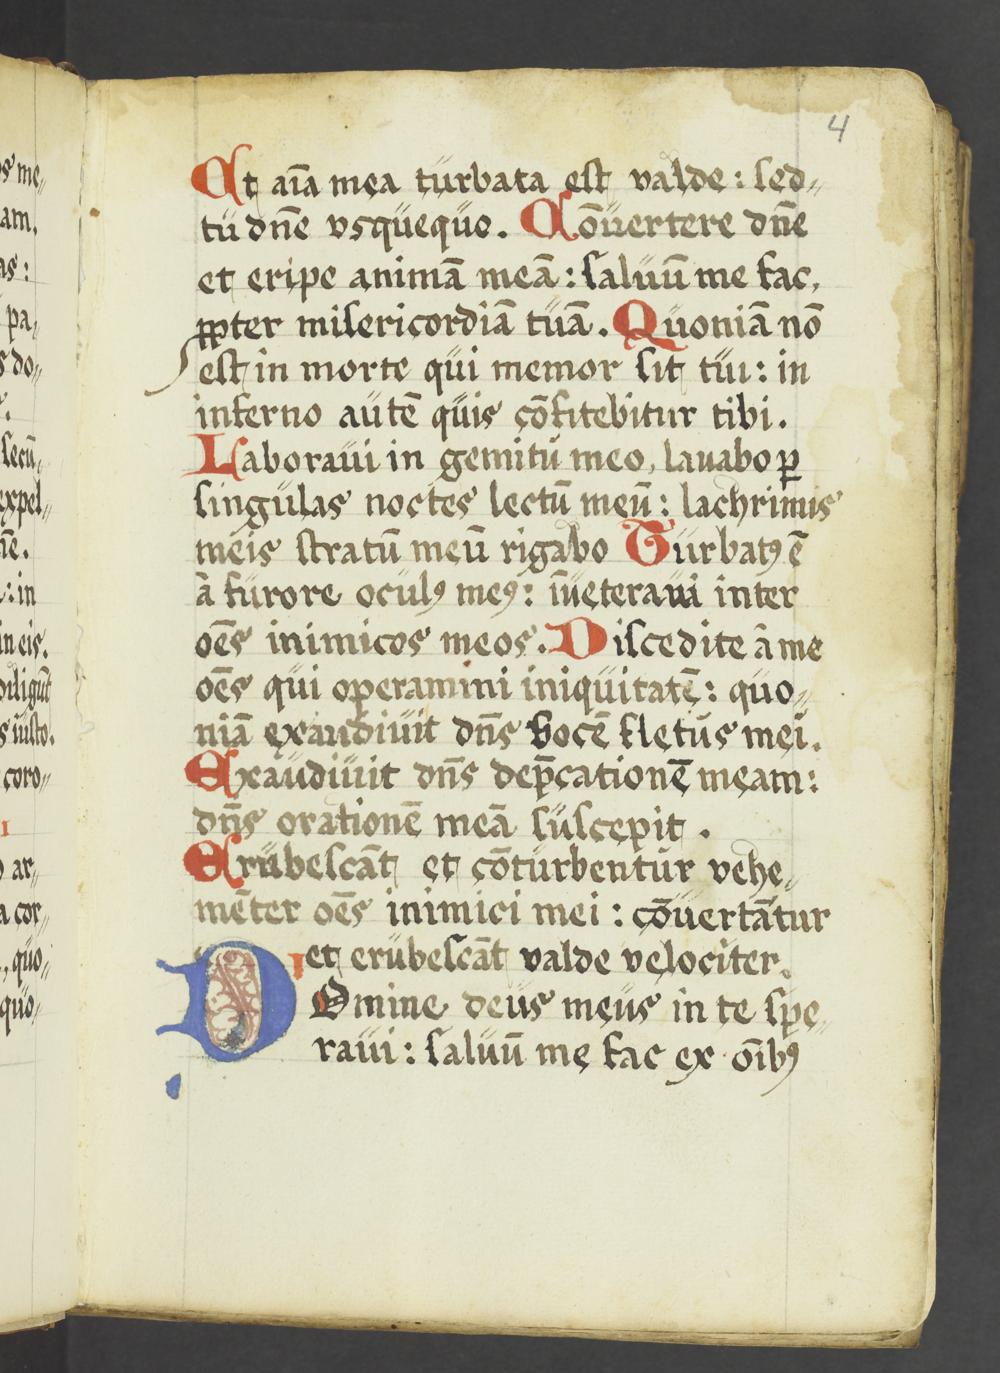 4
Et aīa mea turbata est valde: sed„
tu dn̄e vsquequo. Cōuertere dn̄e
et eripe animā meā: saluū me fac,
ꝓpter misericordiā tuā. Quoniā nō
est in morte qui memor sit tui: in
inferno autē quis cōfitebitur tibi.
Laboraui in gemitu meo, lauabo ꝑ
singulas noctes lectū meū: lachrimis
meis stratū meū rigabo Turbatꝰ ē
à furore oculꝰ meꝰ: īueteraui inter
oēs inimicos meos. Discedite à me
oēs qui operamini iniquitatē: quo„
niā exaudiuit dn̄s vocē fletus mei.
Exaudiuit dn̄s dep̄cationē meam:
dn̄s orationē meā suscepit.
Erubescāt et cōturbentur vehe„
mēter oēs inimici mei: cōuertātur
et erubescāt valde velociter.
DOmine deus meus in te spe„
raui: saluū me fac ex oībꝰ
s me„
am.
as:
pa„
s do„
secū„
expel„
n̄e.
: in
in eis.
diligūt
s iusto.
coro„
ar„
a cor„
, quo„
quo„